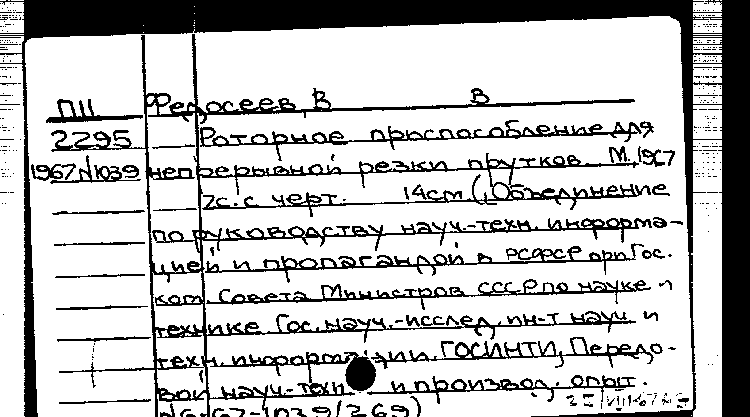 П11 Федосеев, В В
2295 Роторное приспособление для
1967 N1039 непрерывной резки прутков. М., 1967
2с. с черт. 14см (, Объединение
по руководству науч.-техн. информа-
цией и пропагандой в РСФСР при Гос.
ком. Совета Министров СССР по науке и
технике Гос. науч.-исслед. ин-т науч. и
техн. информации. ГОСИНТИ, Передо-
вой науч.-техн. и производ. опыт.
N6-67-1039/369)